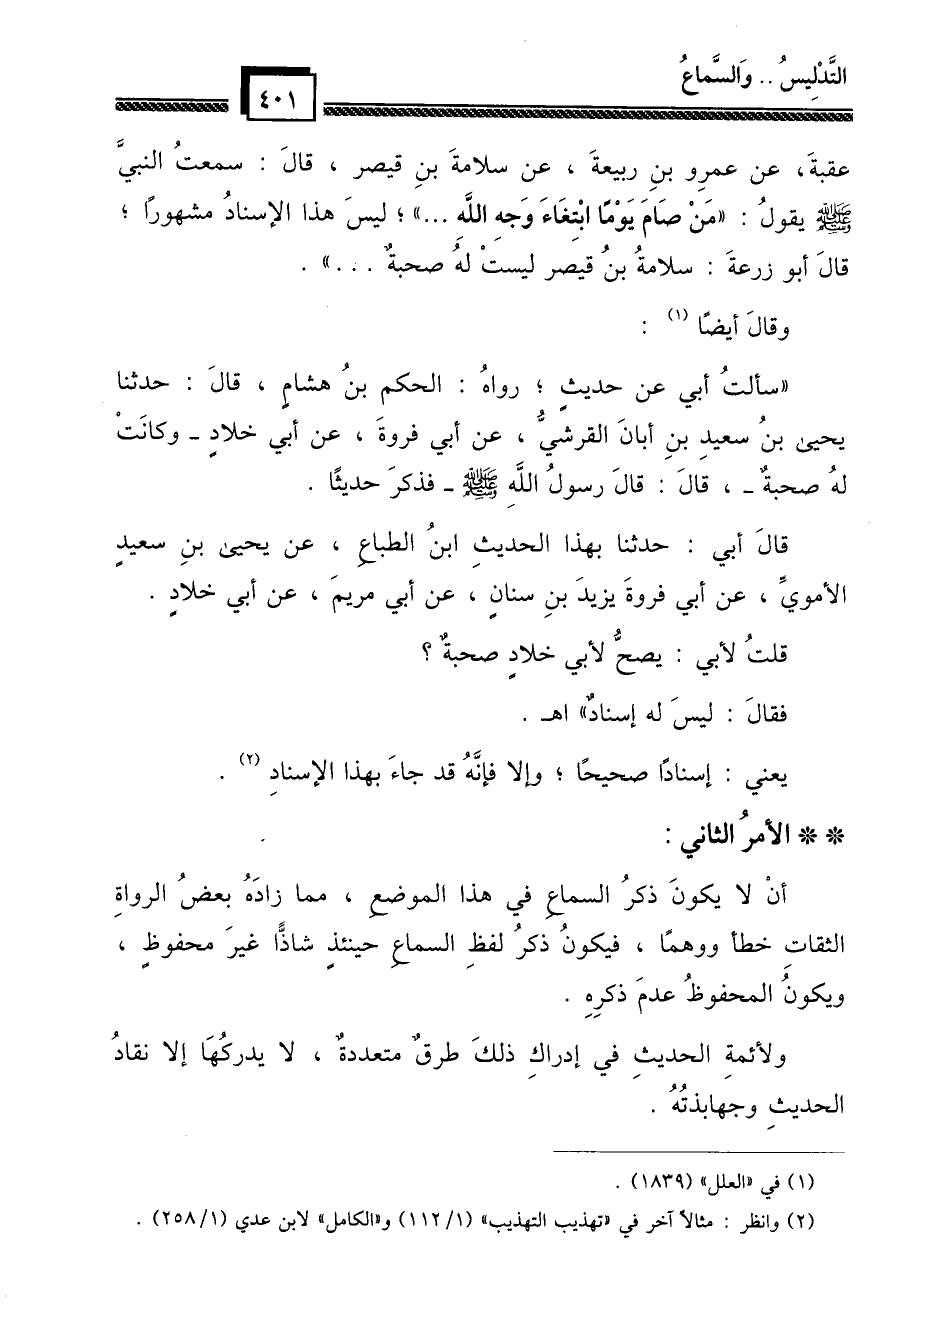 التَّدْلِيسُ .. وَالسَّماعُ
٤٠١
عقبةَ، عن عمرِو بنِ ربيعةَ ، عن سلامةَ بنِ قيصر ، قالَ : سمعتُ النبيَّ
ﷺ يقولُ : «مَنْ صَامَ يَوْمًا ابْتِغَاءَ وَجهِ اللَّهِ ...» ؛ ليسَ هذا الإسنادُ مشهورًا ؛
قالَ أبو زرعةَ : سلامةُ بنُ قيصر ليستْ لهُ صحبةٌ ...» .
وقالَ أيضًا (١) :
«سألتُ أبي عن حديثٍ ؛ رواهُ : الحكم بنُ هشامٍ ، قالَ : حدثنا
يحيىٰ بنُ سعيدِ بنِ أبانَ القرشيُّ ، عن أبي فروةَ ، عن أبي خلادٍ ـ وكانَتْ
لهُ صحبةٌ ـ ، قالَ : قالَ رسولُ اللَّهِ ﷺ ـ فذكرَ حديثًا .
قالَ أبي : حدثنا بهذا الحديثِ ابنُ الطباعِ ، عن يحيىٰ بنِ سعيدٍ
الأمويِّ ، عن أبي فروةَ يزيدَ بنِ سنانٍ ، عن أبي مريمَ ، عن أبي خلادٍ .
قلتُ لأبي : يصحُّ لأبي خلادٍ صحبةٌ ؟
فقالَ : ليسَ له إسنادٌ» اهـ .
يعني : إسنادًا صحيحًا ؛ وإلا فإنَّهُ قد جاءَ بهذا الإسنادِ (٢) .
** الأمرُ الثاني :
أنْ لا يكونَ ذكرُ السماعِ في هذا الموضعِ ، مما زادَهُ بعضُ الرواةِ
الثقاتِ خطأ ووهمًا ، فيكونُ ذكرُ لفظِ السماعِ حينئذٍ شاذًّا غيرَ محفوظٍ ،
ويكونُ المحفوظُ عدمَ ذكرِهِ .
ولأئمةِ الحديثِ في إدراكِ ذلكَ طرقٌ متعددةٌ ، لا يدركُهَا إلا نقادُ
الحديثِ وجهابذتُهُ .
(١) في «العلل» (١٨٣٩) .
(٢) وانظر : مثالاً آخر في «تهذيب التهذيب» (١١٢/١) و«الكامل» لابن عدي (٢٥٨/١) .